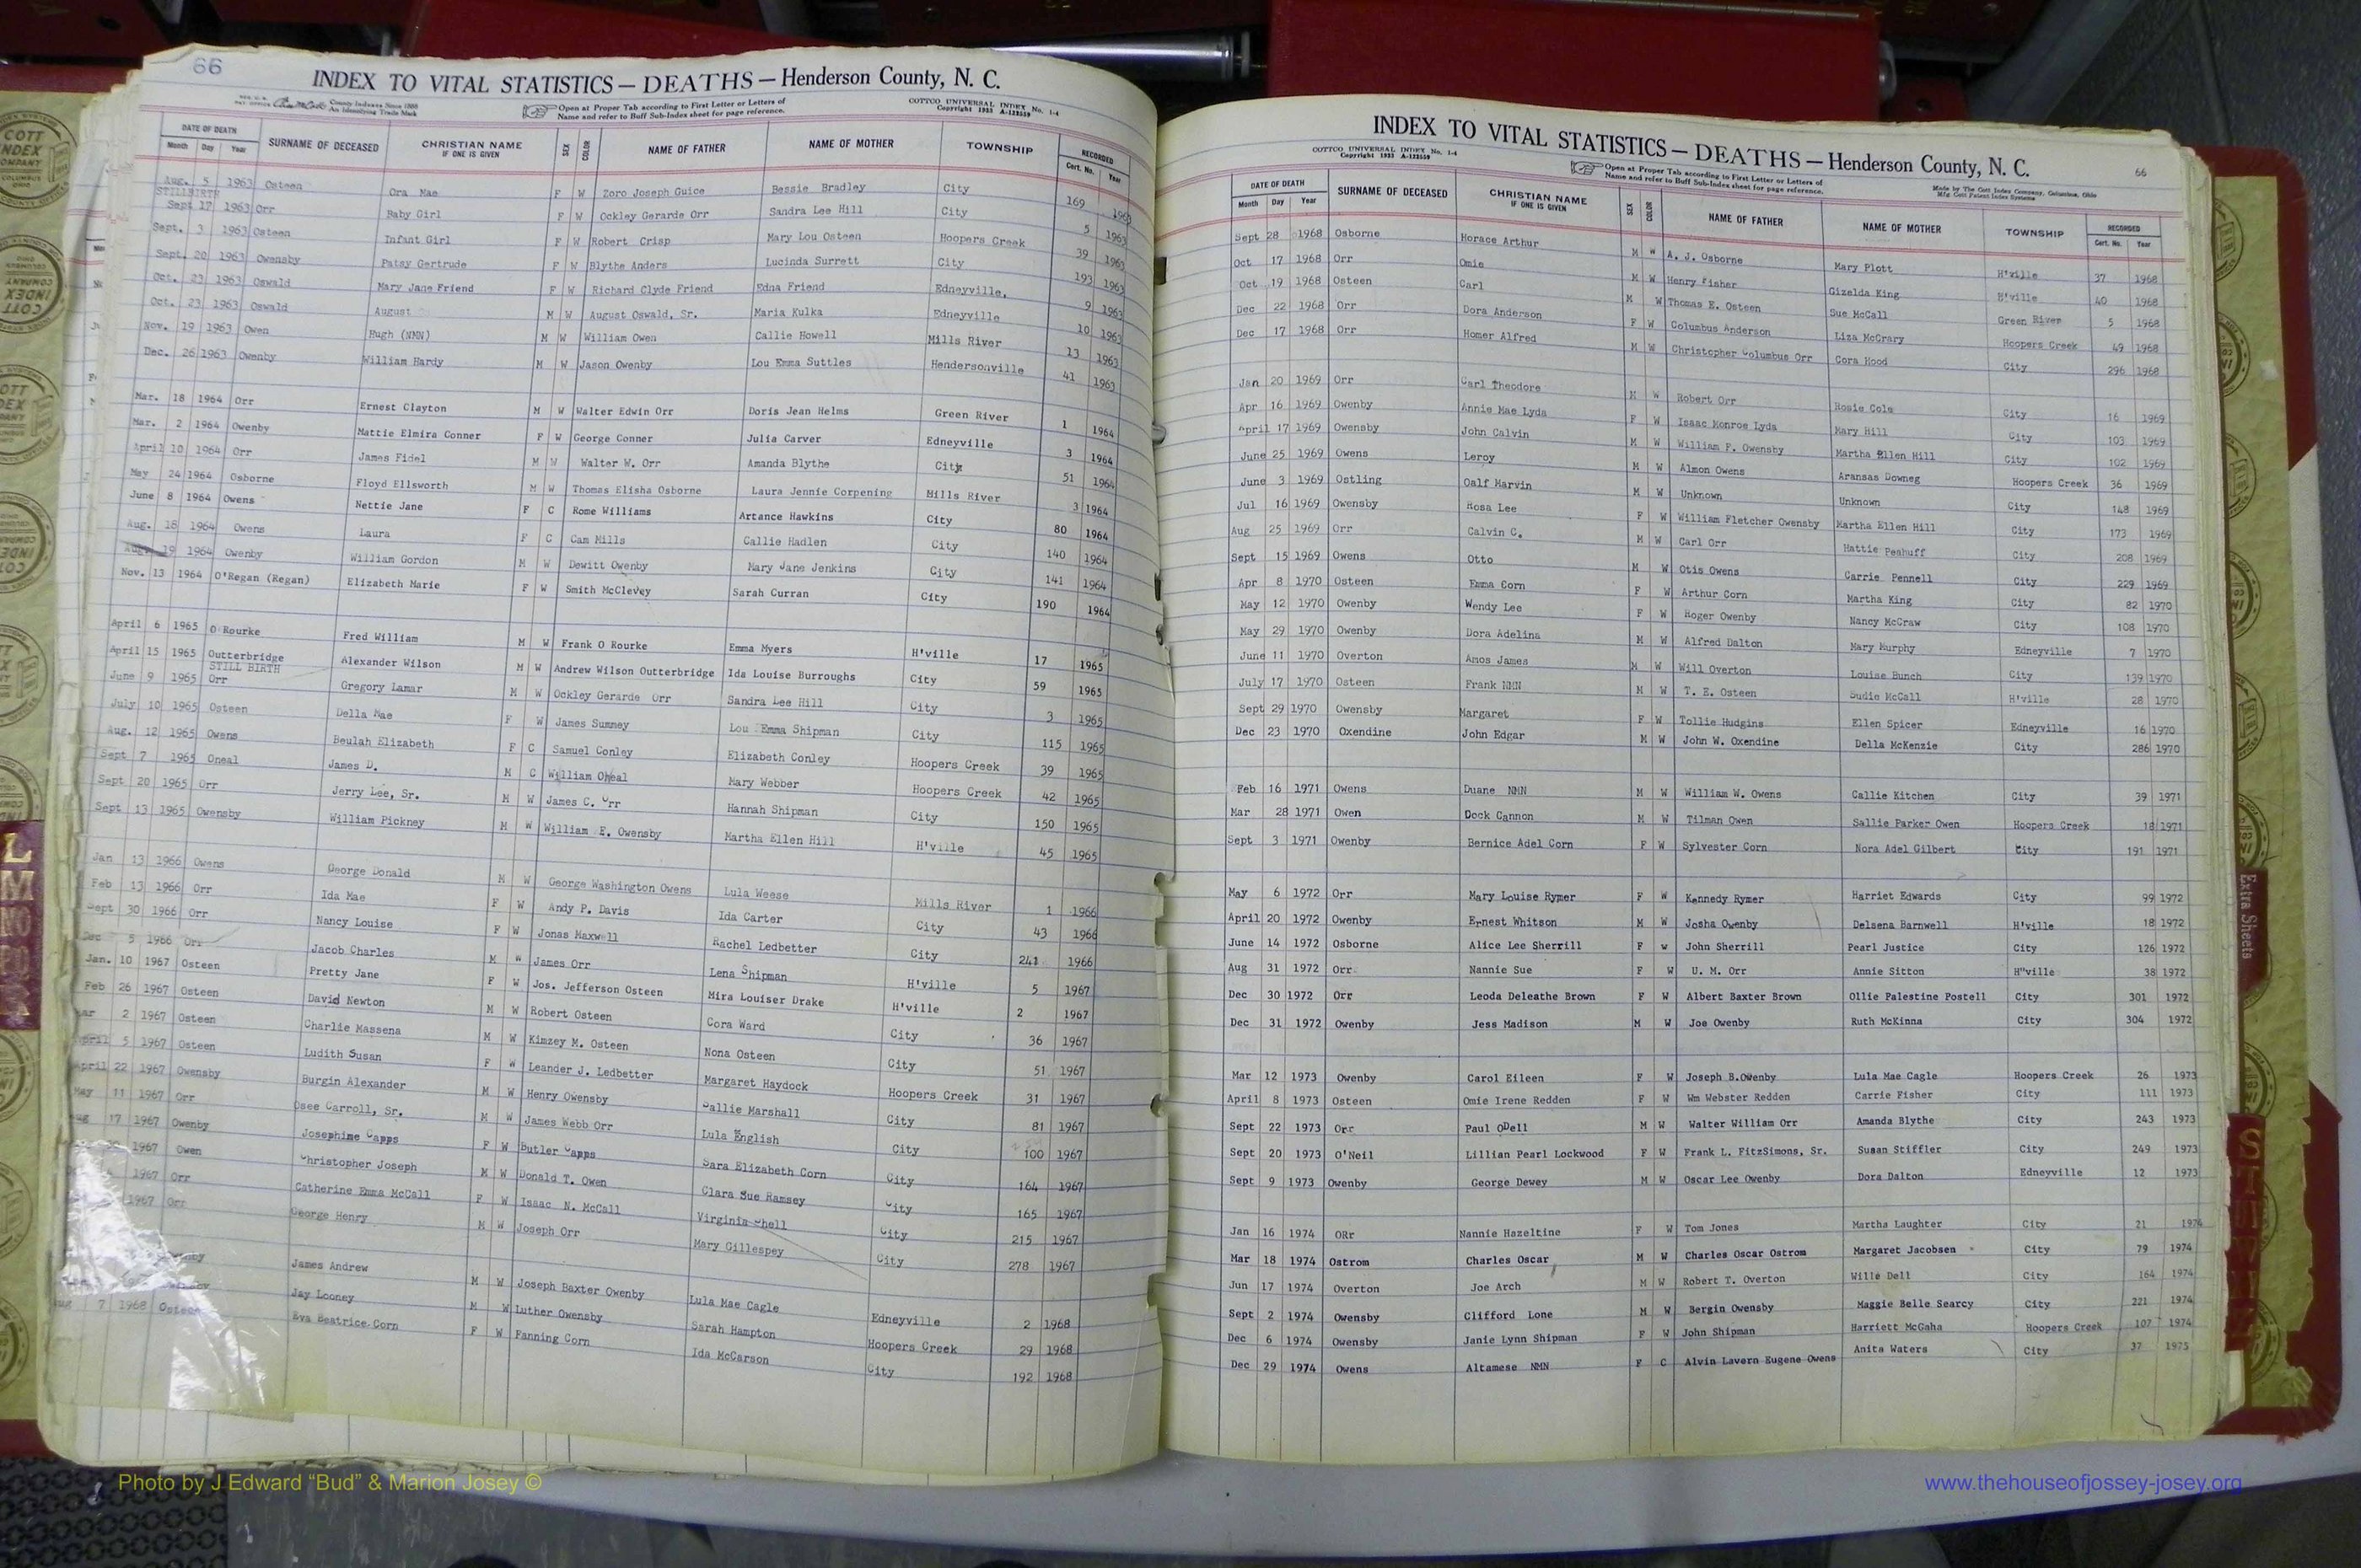 66
INDEX TO VITAL STATISTICS — DEATHS — Henderson County, N. C.
County Indexes Since 1888
An Identifying Trade Mark
Open at Proper Tab according to First Letter or Letters of
Name and refer to Buff Sub-Index sheet for page reference.
COTTCO UNIVERSAL INDEX No. 1-4
Copyright 1933 A-122559
DATE OF DEATH SURNAME OF DECEASED CHRISTIAN NAME IF ONE IS GIVEN SEX COLOR NAME OF FATHER NAME OF MOTHER TOWNSHIP RECORDED
Month Day Year Cert. No. Year
Aug. 5 1963 Osteen Ora Mae F W Zoro Joseph Guice Bessie Bradley City 169 1963
STILLBIRTH
Sept 17 1963 Orr Baby Girl F W Ockley Gerarde Orr Sandra Lee Hill City 5 1963
Sept. 3 1963 Osteen Infant Girl F W Robert Crisp Mary Lou Osteen Hoopers Creek 39 1963
Sept. 20 1963 Owensby Patsy Gertrude F W Blythe Anders Lucinda Surrett City 193 1963
Oct. 23 1963 Oswald Mary Jane Friend F W Richard Clyde Friend Edna Friend Edneyville, 9 1963
Oct. 23 1963 Oswald August M W August Oswald, Sr. Maria Kulka Edneyville 10 1963
Nov. 19 1963 Owen Hugh (NMN) M W William Owen Callie Howell Mills River 13 1963
Dec. 26 1963 Owenby William Hardy M W Jason Owenby Lou Emma Suttles Hendersonville 41 1963
Mar. 18 1964 Orr Ernest Clayton M W Walter Edwin Orr Doris Jean Helms Green River 1 1964
Mar. 2 1964 Owenby Mattie Elmira Conner F W George Conner Julia Carver Edneyville 3 1964
April 10 1964 Orr James Fidel M W Walter W. Orr Amanda Blythe City 51 1964
May 24 1964 Osborne Floyd Ellsworth M W Thomas Elisha Osborne Laura Jennie Corpening Mills River 3 1964
June 8 1964 Owens Nettie Jane F C Rome Williams Artance Hawkins City 80 1964
Aug. 18 1964 Owens Laura F C Cam Mills Callie Hadlen City 140 1964
Aug. 19 1964 Owenby William Gordon M W Dewitt Owenby Mary Jane Jenkins City 141 1964
Nov. 13 1964 O'Regan (Regan) Elizabeth Marie F W Smith McClevey Sarah Curran City 190 1964
April 6 1965 O Rourke Fred William M W Frank O Rourke Emma Myers H'ville 17 1965
April 15 1965 Outterbridge Alexander Wilson M W Andrew Wilson Outterbridge Ida Louise Burroughs City 59 1965
STILL BIRTH
June 9 1965 Orr Gregory Lamar M W Ockley Gerarde Orr Sandra Lee Hill City 3 1965
July 10 1965 Osteen Della Mae F W James Summey Lou Emma Shipman City 115 1965
Aug. 12 1965 Owens Beulah Elizabeth F C Samuel Conley Elizabeth Conley Hoopers Creek 39 1965
Sept 7 1965 Oneal James D. M C William Oneal Mary Webber Hoopers Creek 42 1965
Sept 20 1965 Orr Jerry Lee, Sr. M W James C. Orr Hannah Shipman City 150 1965
Sept 13 1965 Owensby William Pickney M W William E. Owensby Martha Ellen Hill H'ville 45 1965
Jan 13 1966 Owens George Donald M W George Washington Owens Lula Weese Mills River 1 1966
Feb 13 1966 Orr Ida Mae F W Andy P. Davis Ida Carter City 43 1966
Sept 30 1966 Orr Nancy Louise F W Jonas Maxwell Rachel Ledbetter City 241 1966
Dec 5 1966 Orr Jacob Charles M W James Orr Lena Shipman H'ville 5 1967
Jan. 10 1967 Osteen Pretty Jane F W Jos. Jefferson Osteen Mira Louiser Drake H'ville 2 1967
Feb 26 1967 Osteen David Newton M W Robert Osteen Cora Ward City 36 1967
Mar 2 1967 Osteen Charlie Massena M W Kimzey M. Osteen Nona Osteen City 51 1967
April 5 1967 Osteen Ludith Susan F W Leander J. Ledbetter Margaret Haydock Hoopers Creek 31 1967
April 22 1967 Owensby Burgin Alexander M W Henry Owensby Sallie Marshall City 81 1967
May 11 1967 Orr Osee Carroll, Sr. M W James Webb Orr Lula English City 100 1967
Aug 17 1967 Owenby Josephine Capps F W Butler Capps Sara Elizabeth Corn City 164 1967
1967 Owen Christopher Joseph M W Donald T. Owen Clara Sue Ramsey City 165 1967
1967 Orr Catherine Emma McCall F W Isaac N. McCall Virginia Shell City 215 1967
1967 Orr George Henry M W Joseph Orr Mary Gillespey City 278 1967
James Andrew M W Joseph Baxter Owenby Lula Mae Cagle Edneyville 2 1968
Jay Looney M W Luther Owensby Sarah Hampton Hoopers Creek 29 1968
Aug 7 1968 Osteen Eva Beatrice Corn F W Fanning Corn Ida McCarson City 192 1968
INDEX TO VITAL STATISTICS — DEATHS — Henderson County, N. C.
COTTCO UNIVERSAL INDEX No. 1-4
Copyright 1933 A-122559
Open at Proper Tab according to First Letter or Letters of
Name and refer to Buff Sub-Index sheet for page reference.
Made by The Cott Index Company, Columbus, Ohio
Mfg. Cott Patent Index Systems
66
DATE OF DEATH SURNAME OF DECEASED CHRISTIAN NAME IF ONE IS GIVEN SEX COLOR NAME OF FATHER NAME OF MOTHER TOWNSHIP RECORDED
Month Day Year Cert. No. Year
Sept 28 1968 Osborne Horace Arthur M W A. J. Osborne Mary Plott H'ville 37 1968
Oct 17 1968 Orr Omie M W Henry Fisher Gizelda King H'ville 40 1968
Oct 19 1968 Osteen Carl M W Thomas E. Osteen Sue McCall Green River 5 1968
Dec 22 1968 Orr Dora Anderson F W Columbus Anderson Liza McCrary Hoopers Creek 49 1968
Dec 17 1968 Orr Homer Alfred M W Christopher Columbus Orr Cora Hood City 296 1968
Jan 20 1969 Orr Carl Theodore M W Robert Orr Rosie Cole City 16 1969
Apr 16 1969 Owenby Annie Mae Lyda F W Isaac Monroe Lyda Mary Hill City 103 1969
April 17 1969 Owensby John Calvin M W William F. Owensby Martha Ellen Hill City 102 1969
June 25 1969 Owens Leroy M W Almon Owens Aransas Downeg Hoopers Creek 36 1969
June 3 1969 Ostling Oalf Marvin M W Unknown Unknown City 148 1969
Jul 16 1969 Owensby Rosa Lee F W William Fletcher Owensby Martha Ellen Hill City 173 1969
Aug 25 1969 Orr Calvin C. M W Carl Orr Hattie Peahuff City 208 1969
Sept 15 1969 Owens Otto M W Otis Owens Carrie Pennell City 229 1969
Apr 8 1970 Osteen Emma Corn F W Arthur Corn Martha King City 82 1970
May 12 1970 Owenby Wendy Lee F W Roger Owenby Nancy McCraw City 108 1970
May 29 1970 Owenby Dora Adelina M W Alfred Dalton Mary Murphy Edneyville 7 1970
June 11 1970 Overton Amos James M W Will Overton Louise Bunch City 139 1970
July 17 1970 Osteen Frank NMN M W T. E. Osteen Sudie McCall H'ville 28 1970
Sept 29 1970 Owensby Margaret F W Tollie Hudgins Ellen Spicer Edneyville 16 1970
Dec 23 1970 Oxendine John Edgar M W John W. Oxendine Della McKenzie City 286 1970
Feb 16 1971 Owens Duane NMN M W William W. Owens Callie Kitchen City 39 1971
Mar 28 1971 Owen Dock Cannon M W Tilman Owen Sallie Parker Owen Hoopers Creek 18 1971
Sept 3 1971 Owenby Bernice Adel Corn F W Sylvester Corn Nora Adel Gilbert City 191 1971
May 6 1972 Orr Mary Louise Rymer F W Kennedy Rymer Harriet Edwards City 99 1972
April 20 1972 Owenby Ernest Whitson M W Josha Owenby Delsena Barnwell H'ville 18 1972
June 14 1972 Osborne Alice Lee Sherrill F w John Sherrill Pearl Justice City 126 1972
Aug 31 1972 Orr Nannie Sue F W U. M. Orr Annie Sitton H"ville 38 1972
Dec 30 1972 Orr Leoda Deleathe Brown F W Albert Baxter Brown Ollie Palestine Postell City 301 1972
Dec 31 1972 Owenby Jess Madison M W Joe Owenby Ruth McKinna City 304 1972
Mar 12 1973 Owenby Carol Eileen F W Joseph B.Owenby Lula Mae Cagle Hoopers Creek 26 1973
April 8 1973 Osteen Omie Irene Redden F W Wm Webster Redden Carrie Fisher City 111 1973
Sept 22 1973 Orr Paul ODell M W Walter William Orr Amanda Blythe City 243 1973
Sept 20 1973 O'Neil Lillian Pearl Lockwood F W Frank L. FitzSimons, Sr. Susan Stiffler City 249 1973
Sept 9 1973 Owenby George Dewey M W Oscar Lee Owenby Dora Dalton Edneyville 12 1973
Jan 16 1974 ORr Nannie Hazeltine F W Tom Jones Martha Laughter City 21 1974
Mar 18 1974 Ostrom Charles Oscar M W Charles Oscar Ostrom Margaret Jacobsen City 79 1974
Jun 17 1974 Overton Joe Arch M W Robert T. Overton Wille Dell City 164 1974
Sept 2 1974 Owensby Clifford Lone M W Bergin Owensby Maggie Belle Searcy City 221 1974
Dec 6 1974 Owensby Janie Lynn Shipman F W John Shipman Harriett McGaha Hoopers Creek 107 1974
Dec 29 1974 Owens Altamese NMN F C Alvin Lavern Eugene Owens Anita Waters City 37 1975
Extra Sheets
Photo by J Edward “Bud” & Marion Josey ©
www.thehouseofjossey-josey.org